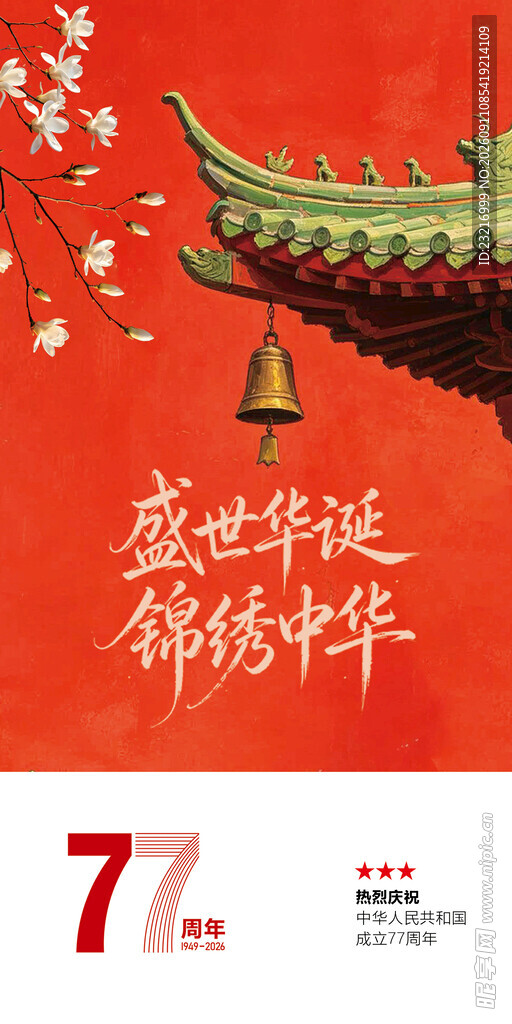 盛世华诞
锦绣中华
77周年
1949-2026
★★★
热烈庆祝
中华人民共和国
成立77周年
ID:23216999 NO:20260911085419214109
昵享网 www.nipic.cn